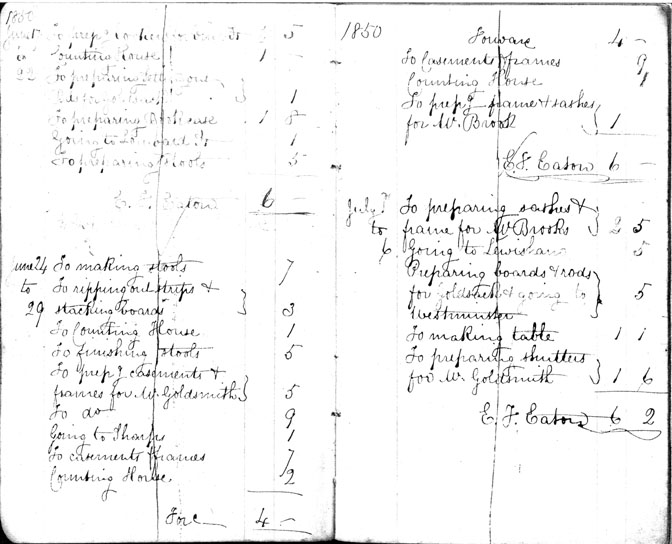 1850
5
Counting House 1 –
22 To preparing
1
To preparing 1 8
Going to 1
To preparing tools 5
Eaton 6 –
June 24 To making stools 7
to To ripping out strips &
29 stacking boards } 3
To Counting House 1
To finishing stools 5
To prepg casements &
frames for Mr Goldsmith } 5
To do 9
Going to Tharps 1
To casements & frames 7
Counting House 2
Ford 4 –
1850 Forward 4 –
To Casements & frames 9
Counting House 1
To prepg frame & sashes
for Mr. Brook } 1
E. F. Eaton 6 –
July 1 To preparing sashes &
to frame for Mr Brooks } 2 5
6 Going to Lewisham 5
Preparing boards & rods
for Goldsmith & going to } 5
Westminster
To making table 1 1
To preparing shutters
for Mr. Goldsmith } 1 6
E. F. Eaton 6 2